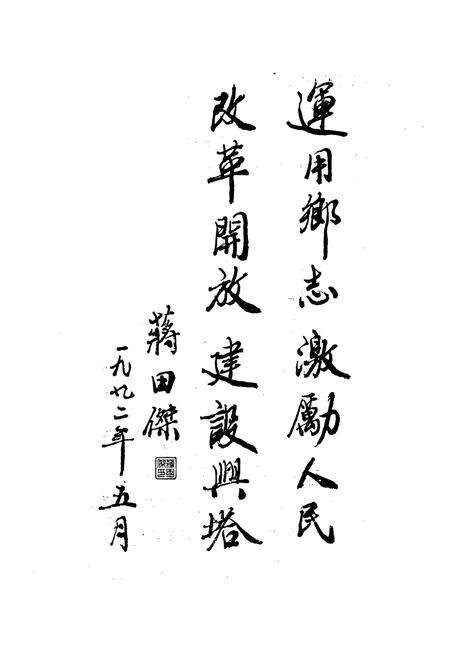 運用鄉志激勵人民
改革開放建設興塔
蔣田傑
一九九二年五月